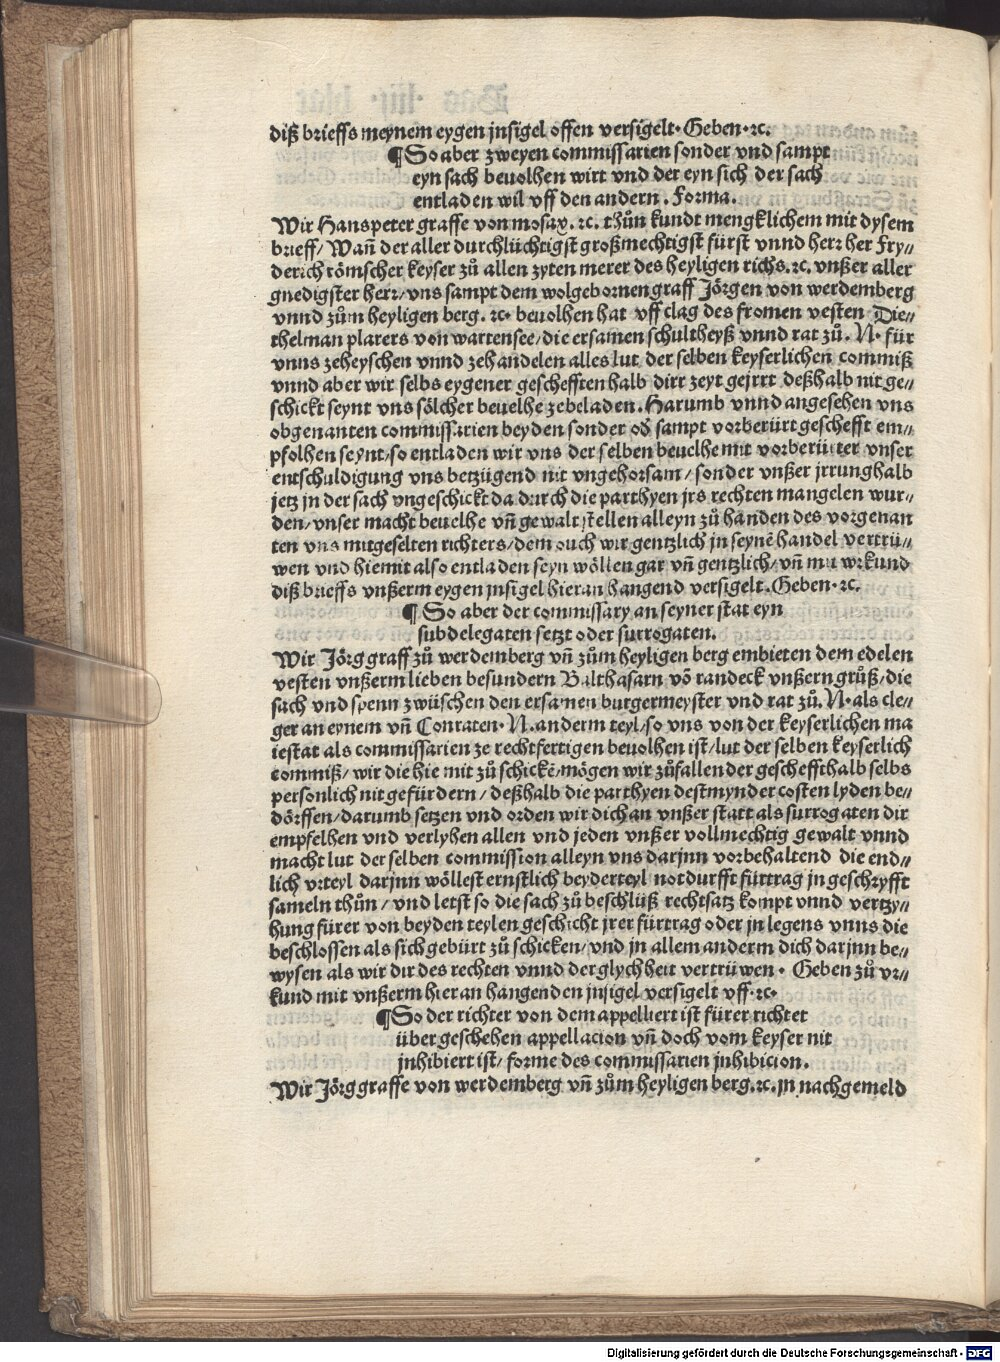 diß brieffs meynem eygen jnsigel offen versigelt· Geben·ꝛc.
¶So aber zweyen commissarien sonder vnd sampt
eyn sach beuolhen wirt vnd der eyn sich der sach
entladen wil vff den andern. Forma.
Wir Hanspeter graffe von mosax. ꝛc. thůn kundt mengklichem mit dysem
brieff/ Wañ der aller durchlüchtigst großmechtigst fürst vnnd herr her Fry⸗
derich römscher keyser zů allen zyten merer des heyligen richs.ꝛc. vnßer aller
gnedigster herr/vns sampt dem wolgebornen graff Jörgen von werdemberg
vnnd zům heyligen berg. ꝛc· beuolhen hat vff clag des fromen vesten Die⸗
thelman plarers von wartensee/die ersamen schultheyß vnnd rat zů. N· für
vnns zeheyschen vnnd zehandelen alles lut der selben keyserlichen commiß
vnnd aber wir selbs eygener geschefften halb dirr zeyt gejrrt deßhalb nit ge⸗
schickt seynt vns sölcher beuelhe zebeladen. Harumb vnnd angesehen vns
obgenanten commissarien beyden sonder od̕ sampt vorberürt geschefft em⸗
pfolhen seynt/so entladen wir vns der selben beuelhe mit vorberürter vnser
entschuldigung vns betzügend nit vngehorsam/ sonder vnßer jrrunghalb
jetz jn der sach vngeschickt da durch die parthyen jrs rechten mangelen wur⸗
den/vnser macht beuelhe vñ gewalt stellen alleyn zů handen des vorgenan
ten vns mitgeselten richters/dem ouch wir gentzlich jn seynē handel vertrü⸗
wen vnd hiemit also entladen seyn wöllen gar vñ gentzlich/vñ mit vrkund
diß brieffs vnßerm eygen jnsigel hieran hangend versigelt. Geben· ꝛc.
¶ So aber der commissary an seyner stat eyn
subdelegaten setzt oder surrogaten.
Wir Jörg graff zů werdemberg vñ zům heyligen berg embieten dem edelen
vesten vnßerm lieben besundern Balthasarn vō randeck vnßern grůß/die
sach vnd spenn zwüschen den ersamen burgermeyster vnd rat zů. N· als cle⸗
ger an eynem vñ Conraten· N. anderm teyl/so vns von der keyserlichen ma
iestat als commissarien ze rechtfertigen beuolhen ist/lut der selben keyserlich
commiß/ wir die hie mit zů schickē/mögen wir zůfallender gescheffthalb selbs
personlich nit gefürdern/ deßhalb die parthyen destmynder costen lyden be⸗
dörffen/darumb setzen vnd orden wir dich an vnßer statt als surrogaten dir
empfelhen vnd verlyhen allen vnd jeden vnßer vollmechtig gewalt vnnd
macht lut der selben commission alleyn vns darjnn vorbehaltend die end⸗
lich vrteyl darjnn wöllest ernstlich beyderteyl notdurfft fürtrag jn geschryfft
sameln thůn/ vnd letst so die sach zů beschlüß rechtsatz kompt vnnd vertzy⸗
hung fürer von beyden teylen geschicht jrer fürtrag oder jn legens vnns die
beschlossen als sich gebürt zů schicken/vnd jn allem anderm dich darjnn be⸗
wysen als wir dir des rechten vnnd der glychheit vertrüwen· Geben zů vr⸗
kund mit vnßerm hieran hangenden jnsigel versigelt vff·ꝛc·
¶So der richter von dem appelliert ist fürer richtet
über geschehen appellacion vñ doch vom keyser nit
jnhibiert ist/ forme des commissarien jnhibicion.
Wir Jörg graffe von werdemberg vñ zům heyligen berg.ꝛc. jn nachgemeld
Digitalisierung gefördert durch die Deutsche Forschungsgemeinschaft - DFG